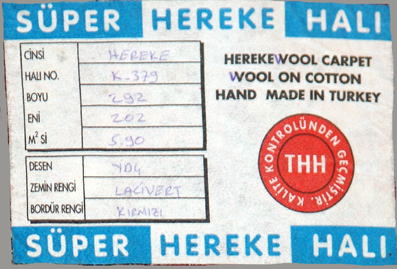 SÜPER HEREKE HALI
CİNSİ HEREKE
HALI NO. K-379
BOYU 292
ENİ 202
M² Sİ 5.90
DESEN YD4
ZEMİN RENGİ LACİVERT
BORDÜR RENGİ KIRMIZI
HEREKE WOOL CARPET
WOOL ON COTTON
HAND MADE IN TURKEY
KALİTE KONTROLÜNDEN GEÇMİŞTİR.
THH
SÜPER HEREKE HALI